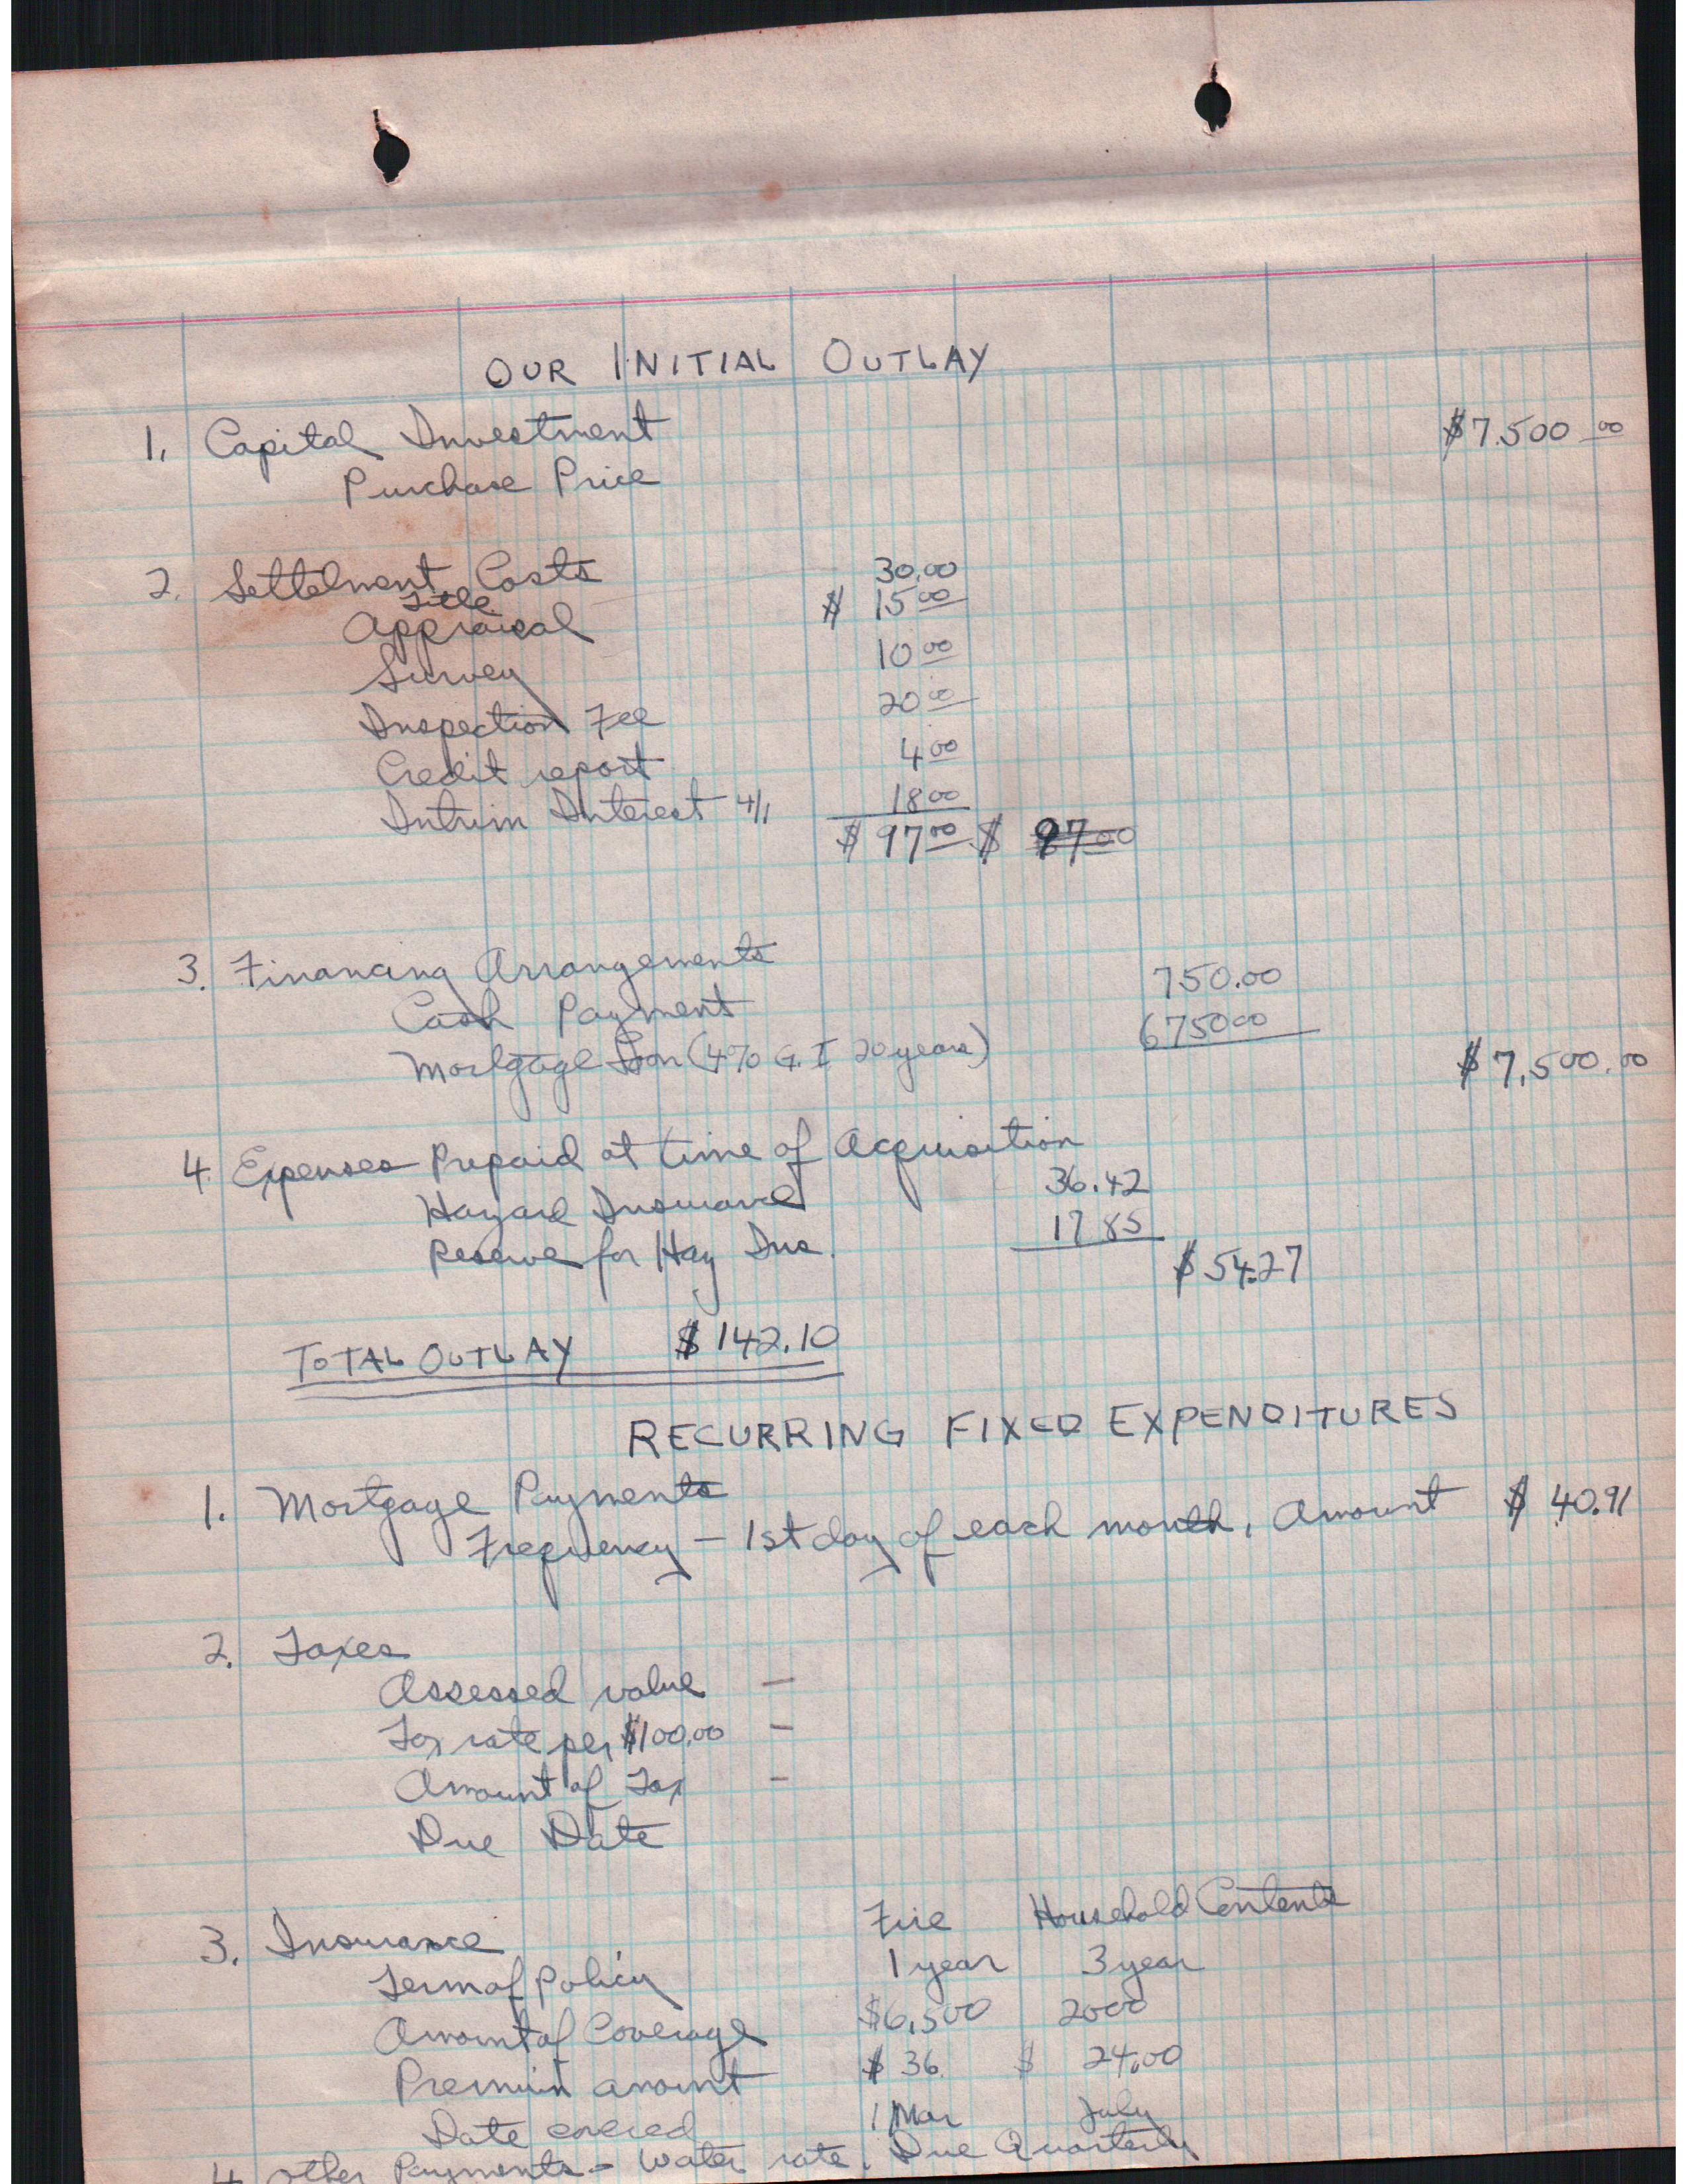 OUR INITIAL OUTLAY
1. Capital Investment $7.500 00
Purchase Price
2. Settelment Costs 30.00
Title $ 15 00
Appraisal
Survey 10 00
Inspection Fee 20 00
Credit report 4 00
Intrim Interest 4/1 18 00
$ 97 00 $ 97 00
3. Financing Arrangements
Cash Payment 750.00
Mortgage Loan (4% G.I 20 years) 6750 00
$ 7,500.00
4. Expenses Prepaid at time of Acquisition
Hazard Insurance 36.42
Reserve for Haz Ins. 17 85
$ 54.27
TOTAL OUTLAY $ 142.10
RECURRING FIXED EXPENDITURES
1. Mortgage Payments
Frequency – 1st day of each month, Amount $ 40.91
2. Taxes
Assessed value –
Tax rate per $100.00 –
Amount of Tax –
Due Date
3. Insurance Fire Household Contents
Term of Policy 1 year 3 year
Amount of Coverage $6,500 2000
Premium amount $ 36. $ 24.00
Date covered 1 Mar July
4 other Payments – Water rate. Due Quarterly